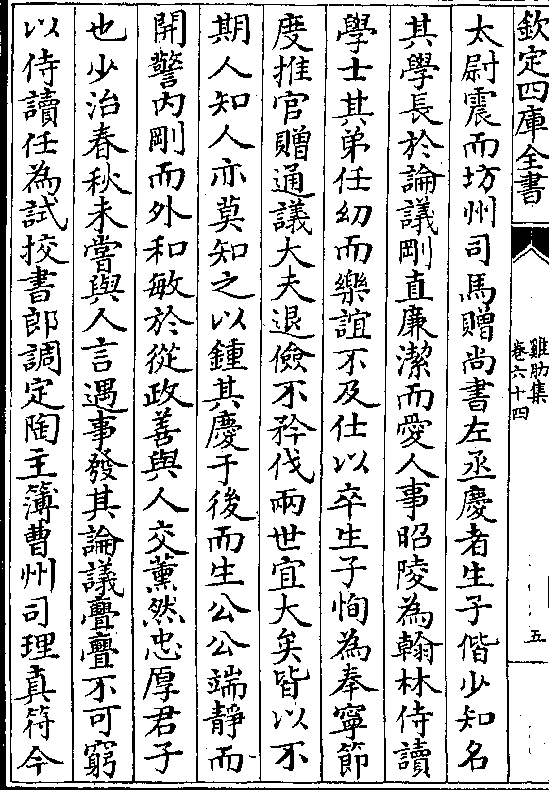 欽定四庫全書
雞肋集
卷六十四
五
太尉震而坊州司馬贈尚書左丞慶者生子偕少知名
其學長於論議剛直廉潔而愛人事昭陵為翰林侍讀
學士其弟任幼而樂誼不及仕以卒生子恂為奉寧節
度推官贈通議大夫退儉不矜伐兩世宜大矣皆以不
期人知人亦莫知之以鍾其慶于後而生公公端靜而
開警内剛而外和敏於從政善與人交薰然忠厚君子
也少治春秋未嘗與人言遇事發其論議亹亹不可窮
以侍讀任為試挍書郎調定陶主簿曹州司理真符令